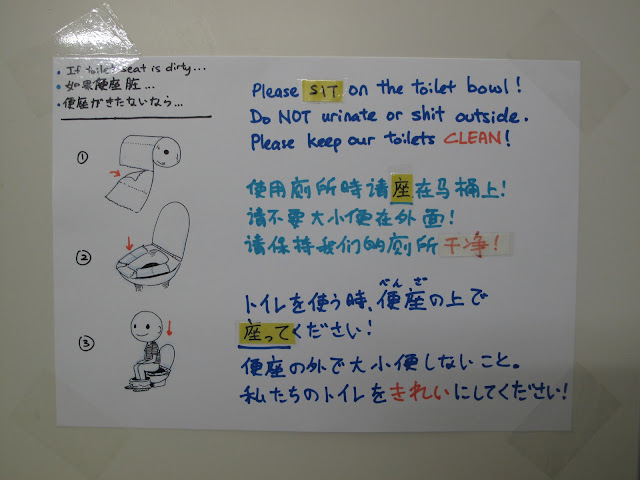 • If toilet seat is dirty...
• 如果便座脏...
• 便座がきたないなら...
①
②
③
Please SIT on the toilet bowl!
Do NOT urinate or shit outside.
Please keep our toilets CLEAN!
使用厕所時请座在马桶上!
请不要大小便在外面!
请保持我们的厕所干净!
トイレを使う時、便座の上で
べんざ
座ってください!
便座の外で大小便しないこと。
私たちのトイレをきれいにしてください!